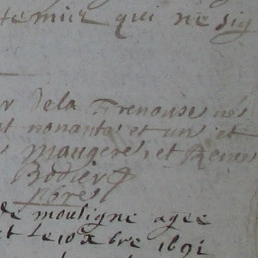 temier qui ne sig
r de la Frenouse nés
t nonante et un et
s maugere, et Renee
Bodier
pbre
de mouligne agee
et le 10 xbre 1691